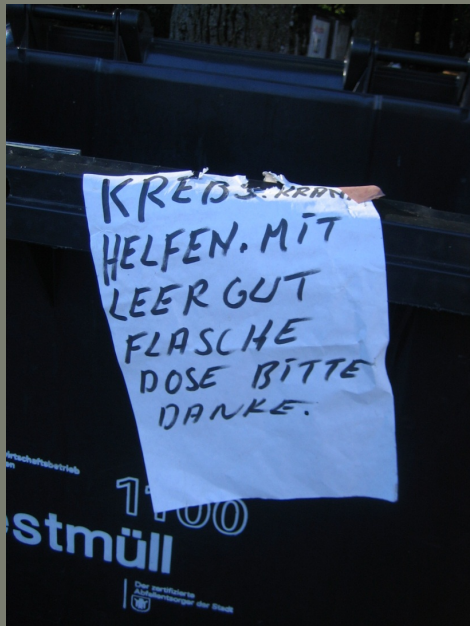 KREBS. KRAN
HELFEN. MIT
LEERGUT
FLASCHE
DOSE BITTE
DANKE.
wirtschaftsbetrieb
en
1100
estmüll
Der zertifizierte
Abfallentsorger der Stadt